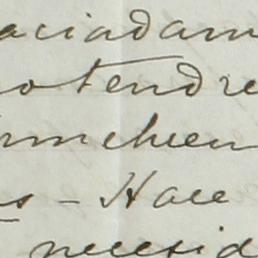 aciadam
o tendre
muchien
s - Hace
necesid